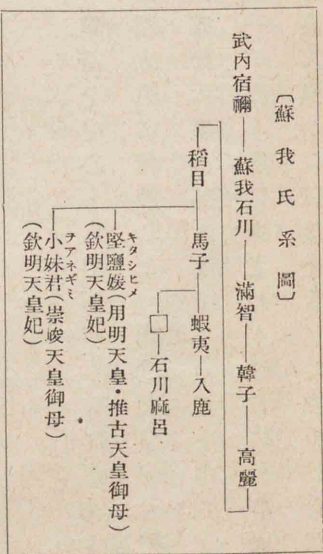 〔蘇我氏系圖〕
武內宿禰―蘇我石川―滿智―韓子―高麗
稻目―馬子―蝦夷―入鹿
□―石川麻呂
キタシヒメ
堅鹽媛(用明天皇・推古天皇御母)
(欽明天皇妃)
ヲアネギミ
小妹君(崇峻天皇御母)
(欽明天皇妃)